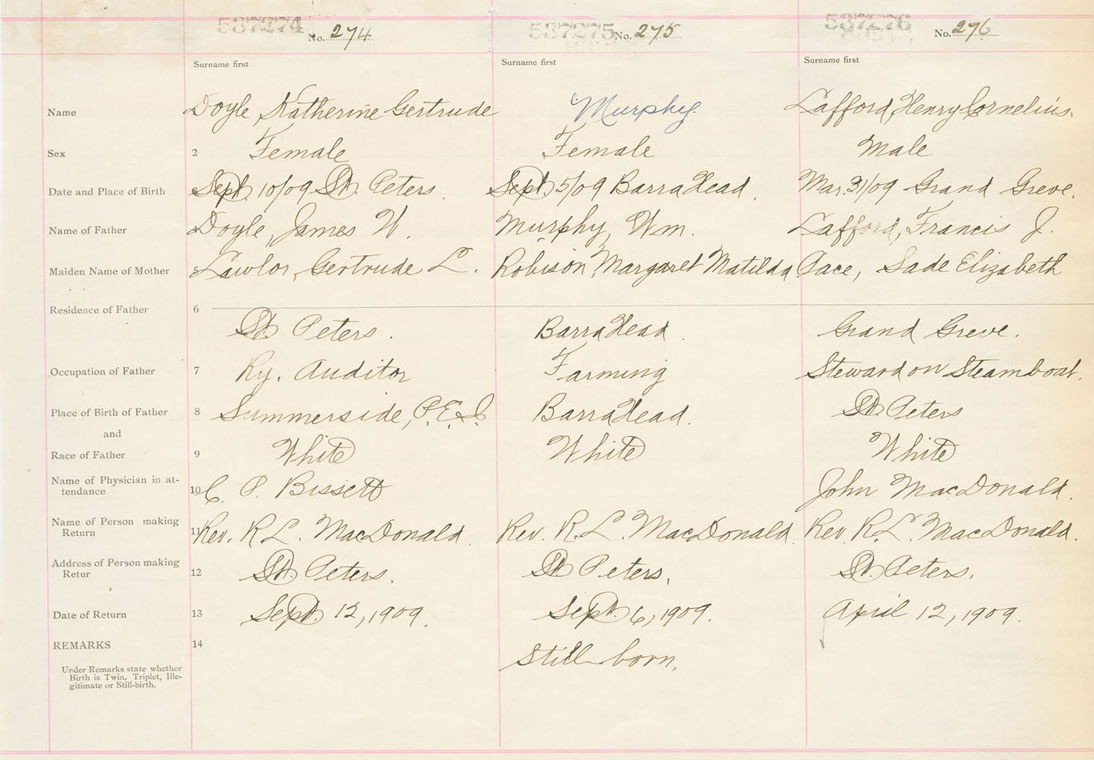 537274 No. 274 537275 No. 275 537276 No. 276
Surname first Surname first Surname first
Name Doyle, Katherine Gertrude Murphy. Lafford, Henry Cornelius.
Sex 2 Female Female Male
Date and Place of Birth Sept. 10/09 St. Peters. Sept. 5/09 Barra Head. Mar. 31/09 Grand Greve.
Name of Father Doyle, James W. Murphy, Wm. Lafford, Francis J.
Maiden Name of Mother Lawlor, Gertrude L. Robison Margaret Matilda Pace, Sade Elizabeth
Residence of Father 6
St. Peters. Barra Head. Grand Greve.
Occupation of Father 7 Ry. Auditor Farming Steward on Steamboat.
Place of Birth of Father 8 Summerside, P.E.I. Barra Head. St. Peters
and
Race of Father 9 White White White
Name of Physician in at-
tendance 10 C. P. Bissett John MacDonald.
Name of Person making
Return 11 Rev. R. L. MacDonald. Rev. R. L. MacDonald. Rev. R. L. MacDonald.
Address of Person making
Retur 12 St. Peters. St. Peters. St. Peters.
Date of Return 13 Sept. 12, 1909. Sept. 6, 1909. April 12, 1909.
REMARKS 14
Still-born.
Under Remarks state whether
Birth is Twin, Triplet, Ille-
gitimate or Still-birth.